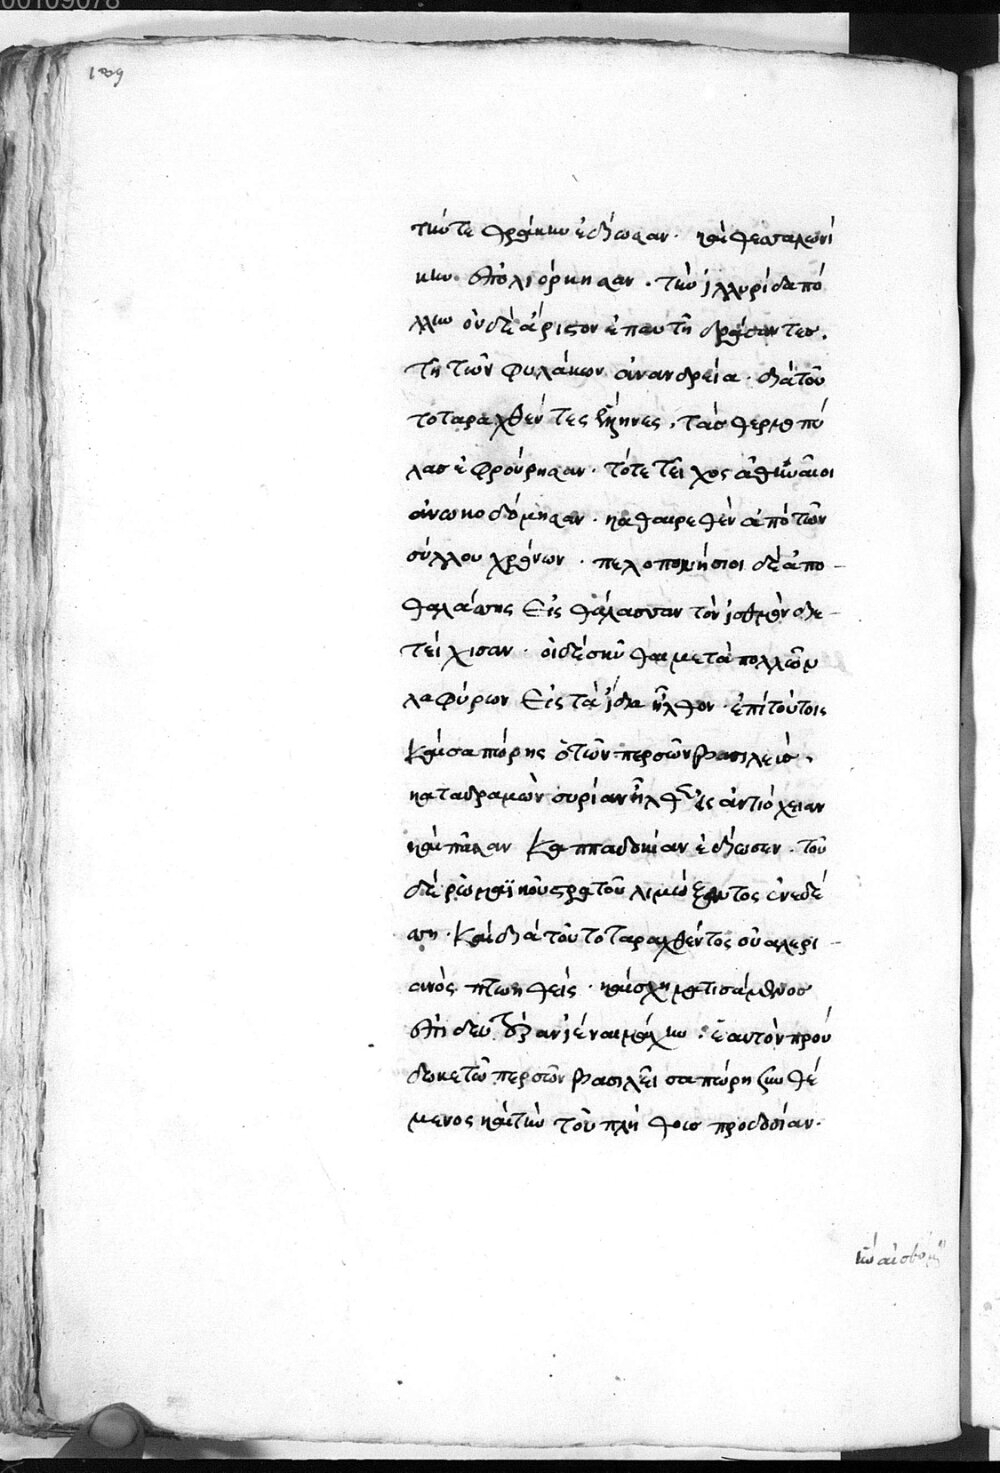 00109078
129
τήν τε θράκην ἐδήωσαν. καὶ θεσσαλονί
κην ἐπολιόρκησαν. τὴν ἰλλυρίδα πό
λιν οὐδὲ ἄριστον ἐπ' αυτῆ δράσαντες.
τῆ τῶν φυλάκων ἀνανδρεία. διὰ τοῦ
το ταραχθέντες ἕλληνες. τὰσ θερμοπύ
λασ ἐφρούρησαν. τότε τεῖχος ἀθηναῖοι
ἀνωκοδόμησαν. καθαιρεθὲν ἀπὸ τῶν
σύλλου χρόνων. πελοπονήσιοι δὲ ἀπο
θαλάσσης εἰς θάλασσαν τὸν ἰσθμὸν διε
τείχισαν. οἱ δὲ σκῦθαι μετὰ πολλῶν
λαφύρων εἰς τὰ ἴδια ἦλθον. ἐπὶ τούτοις
καὶ σαπώρης ὁ τῶν περσῶν βασιλεὺσ.
καταδραμὼν συρίαν ἦλθεν εἰς ἀντιόχειαν
καὶ πᾶσαν καππαδοκίαν ἐδήωσεν. τοῦ
δὲ ῥωμαϊκοῦ στρατοῦ λιμώξαντος ἐνεδέ
ωση. καὶ διὰ τοῦτο ταραχθέντος οὐαλερι
ανὸς πτωηθείς. καὶ σχηματισάμενος
ἐπὶ δευτέραν ἰέναι μάχην. ἑαυτὸν πρού
δωκε τῶ περσῶν βασιλεῖ σαπώρη συνθέ
μενος καὶ τὴν τοῦ πλήθουσ προδοσίαν.